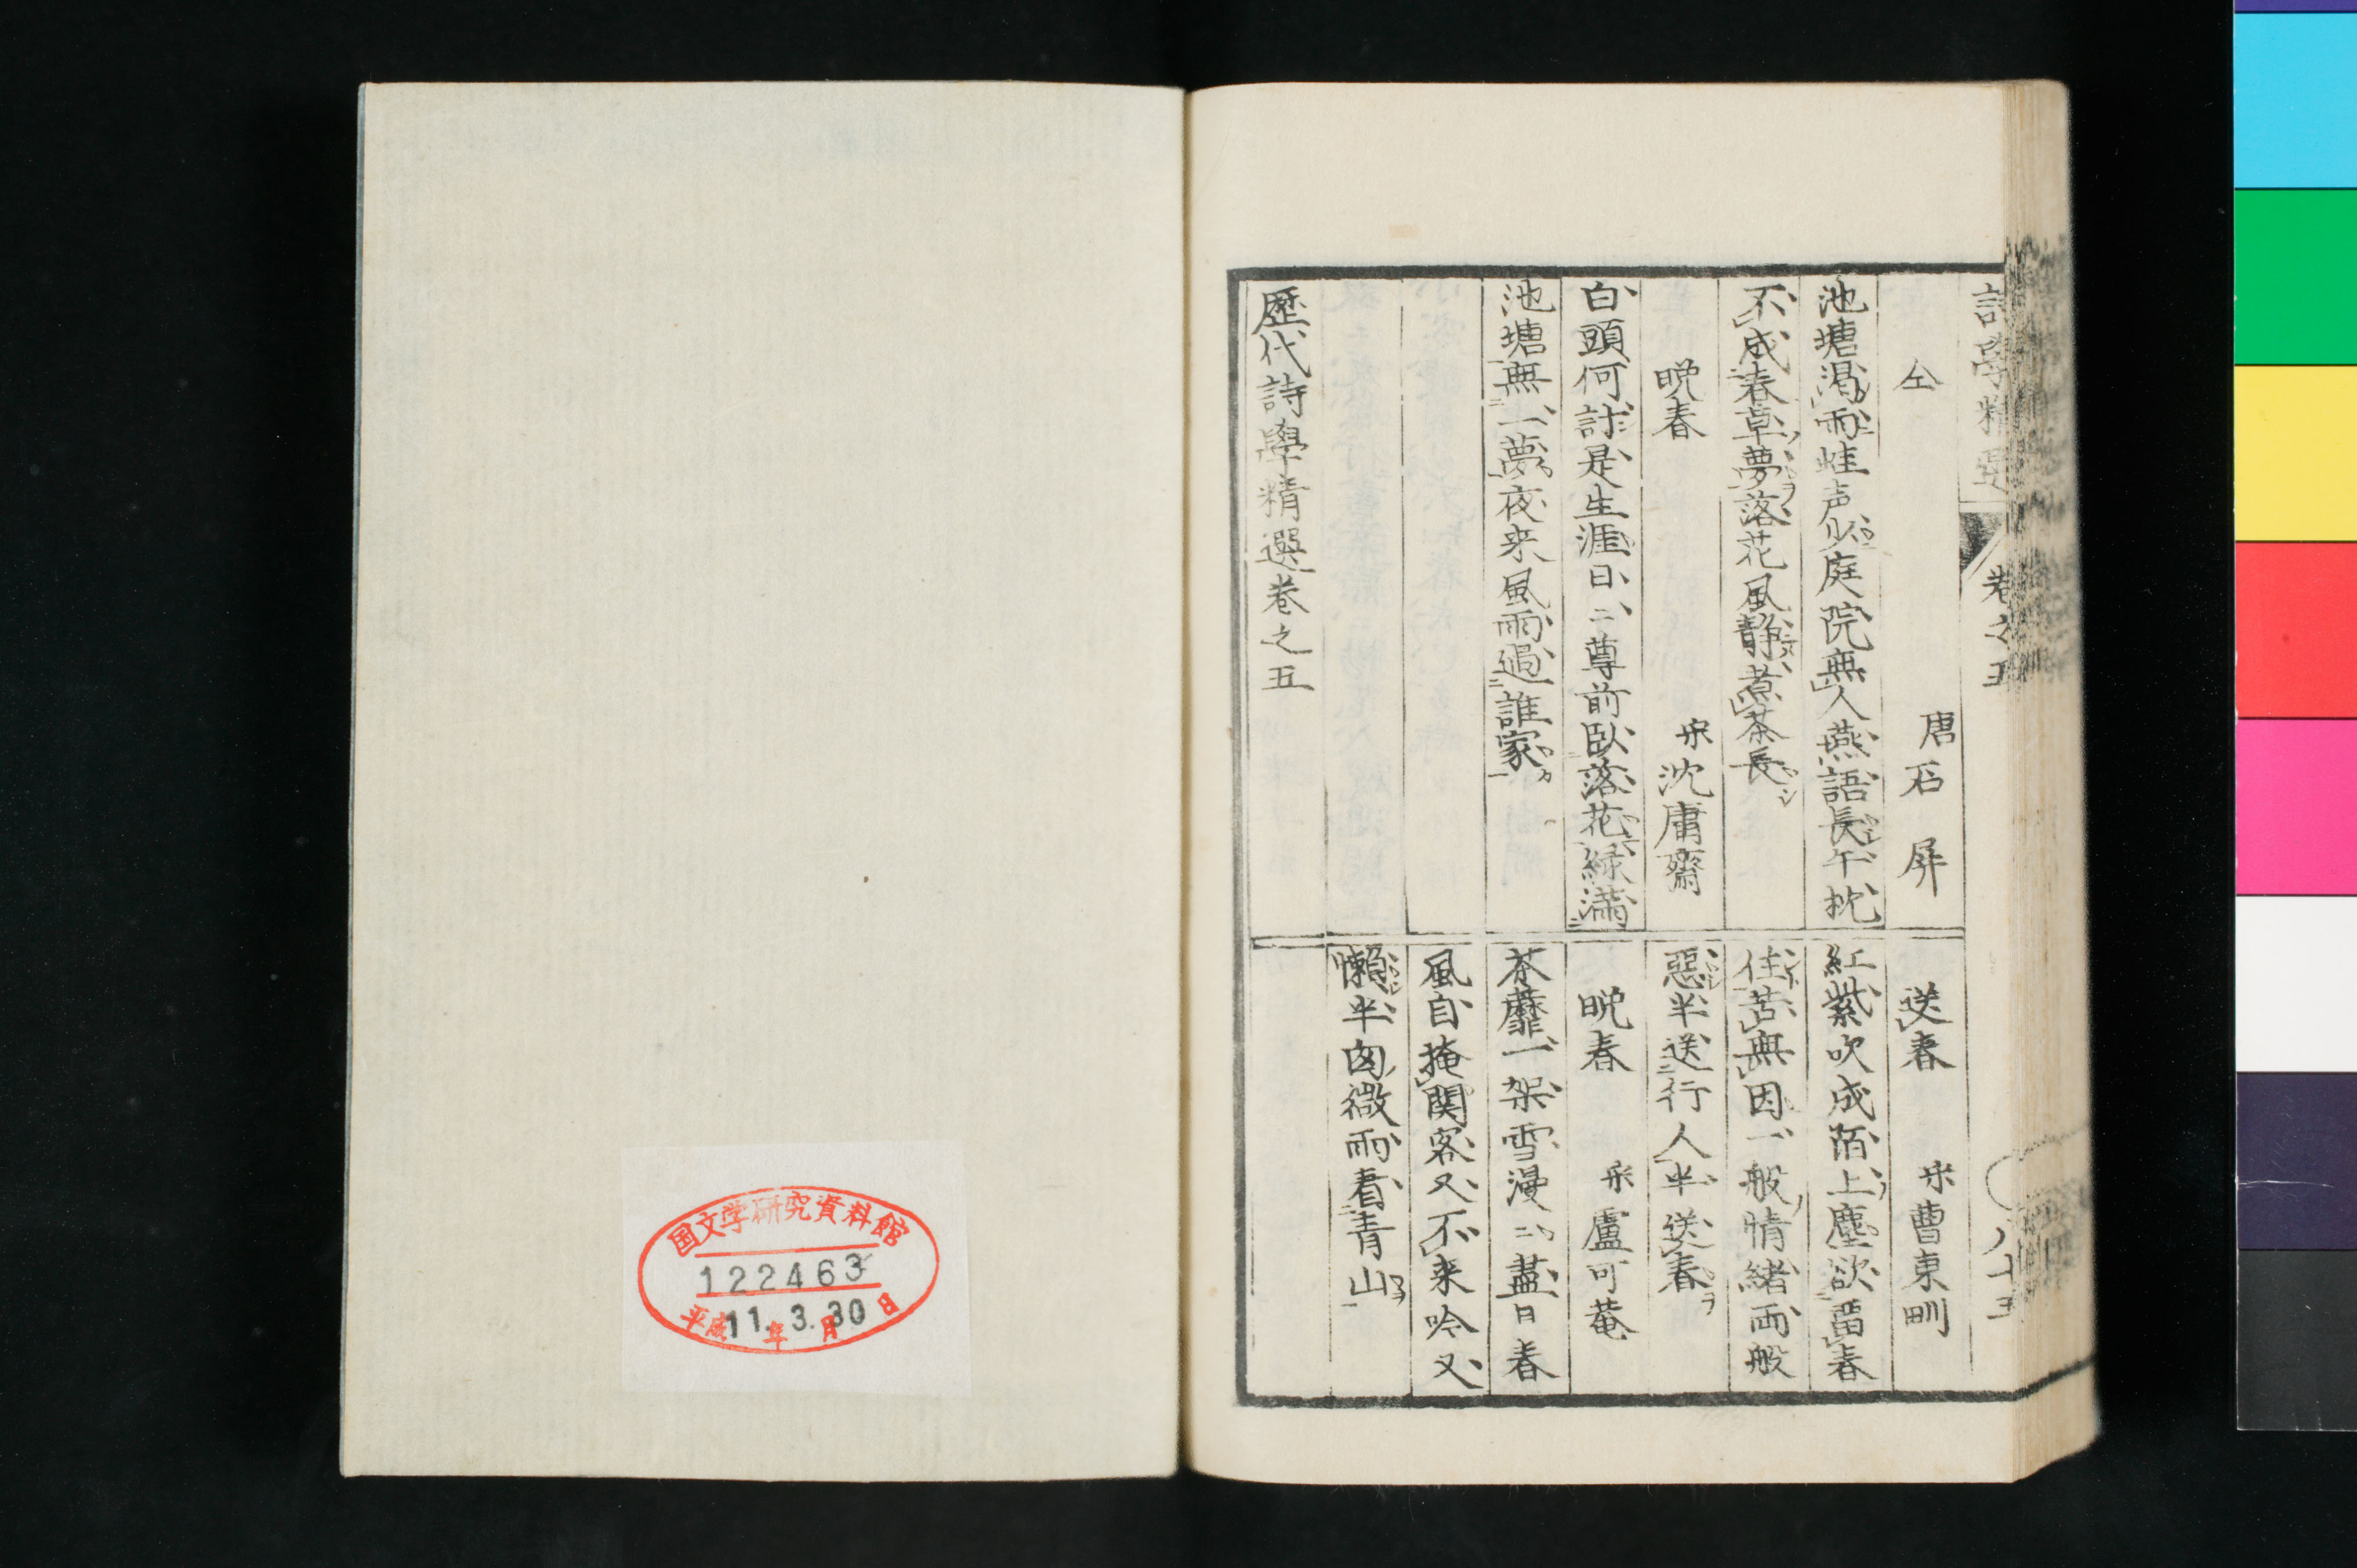 仝
唐 石屏
池塘渇雨蛙声少庭院無人燕語長午枕
不成春草夢落花風静煮茶長
晩春
宋 沈庸齋
白頭何計是生涯日〻尊前臥落花緑満
池塘無一夢夜来風雨過誰家
送春
宋 曹東甽
紅紫吹成陌上塵欲畱春
住苦無因一般情緒両般
惡半送行人半送春
晩春
宋 盧可菴
荼蘼一架雪漫〻盡日春
風自掩関客又不来吟又
懶半囪微雨看青山
歴代詩學精選巻之五
国文学研究資料館
122463
平成11年3月30日